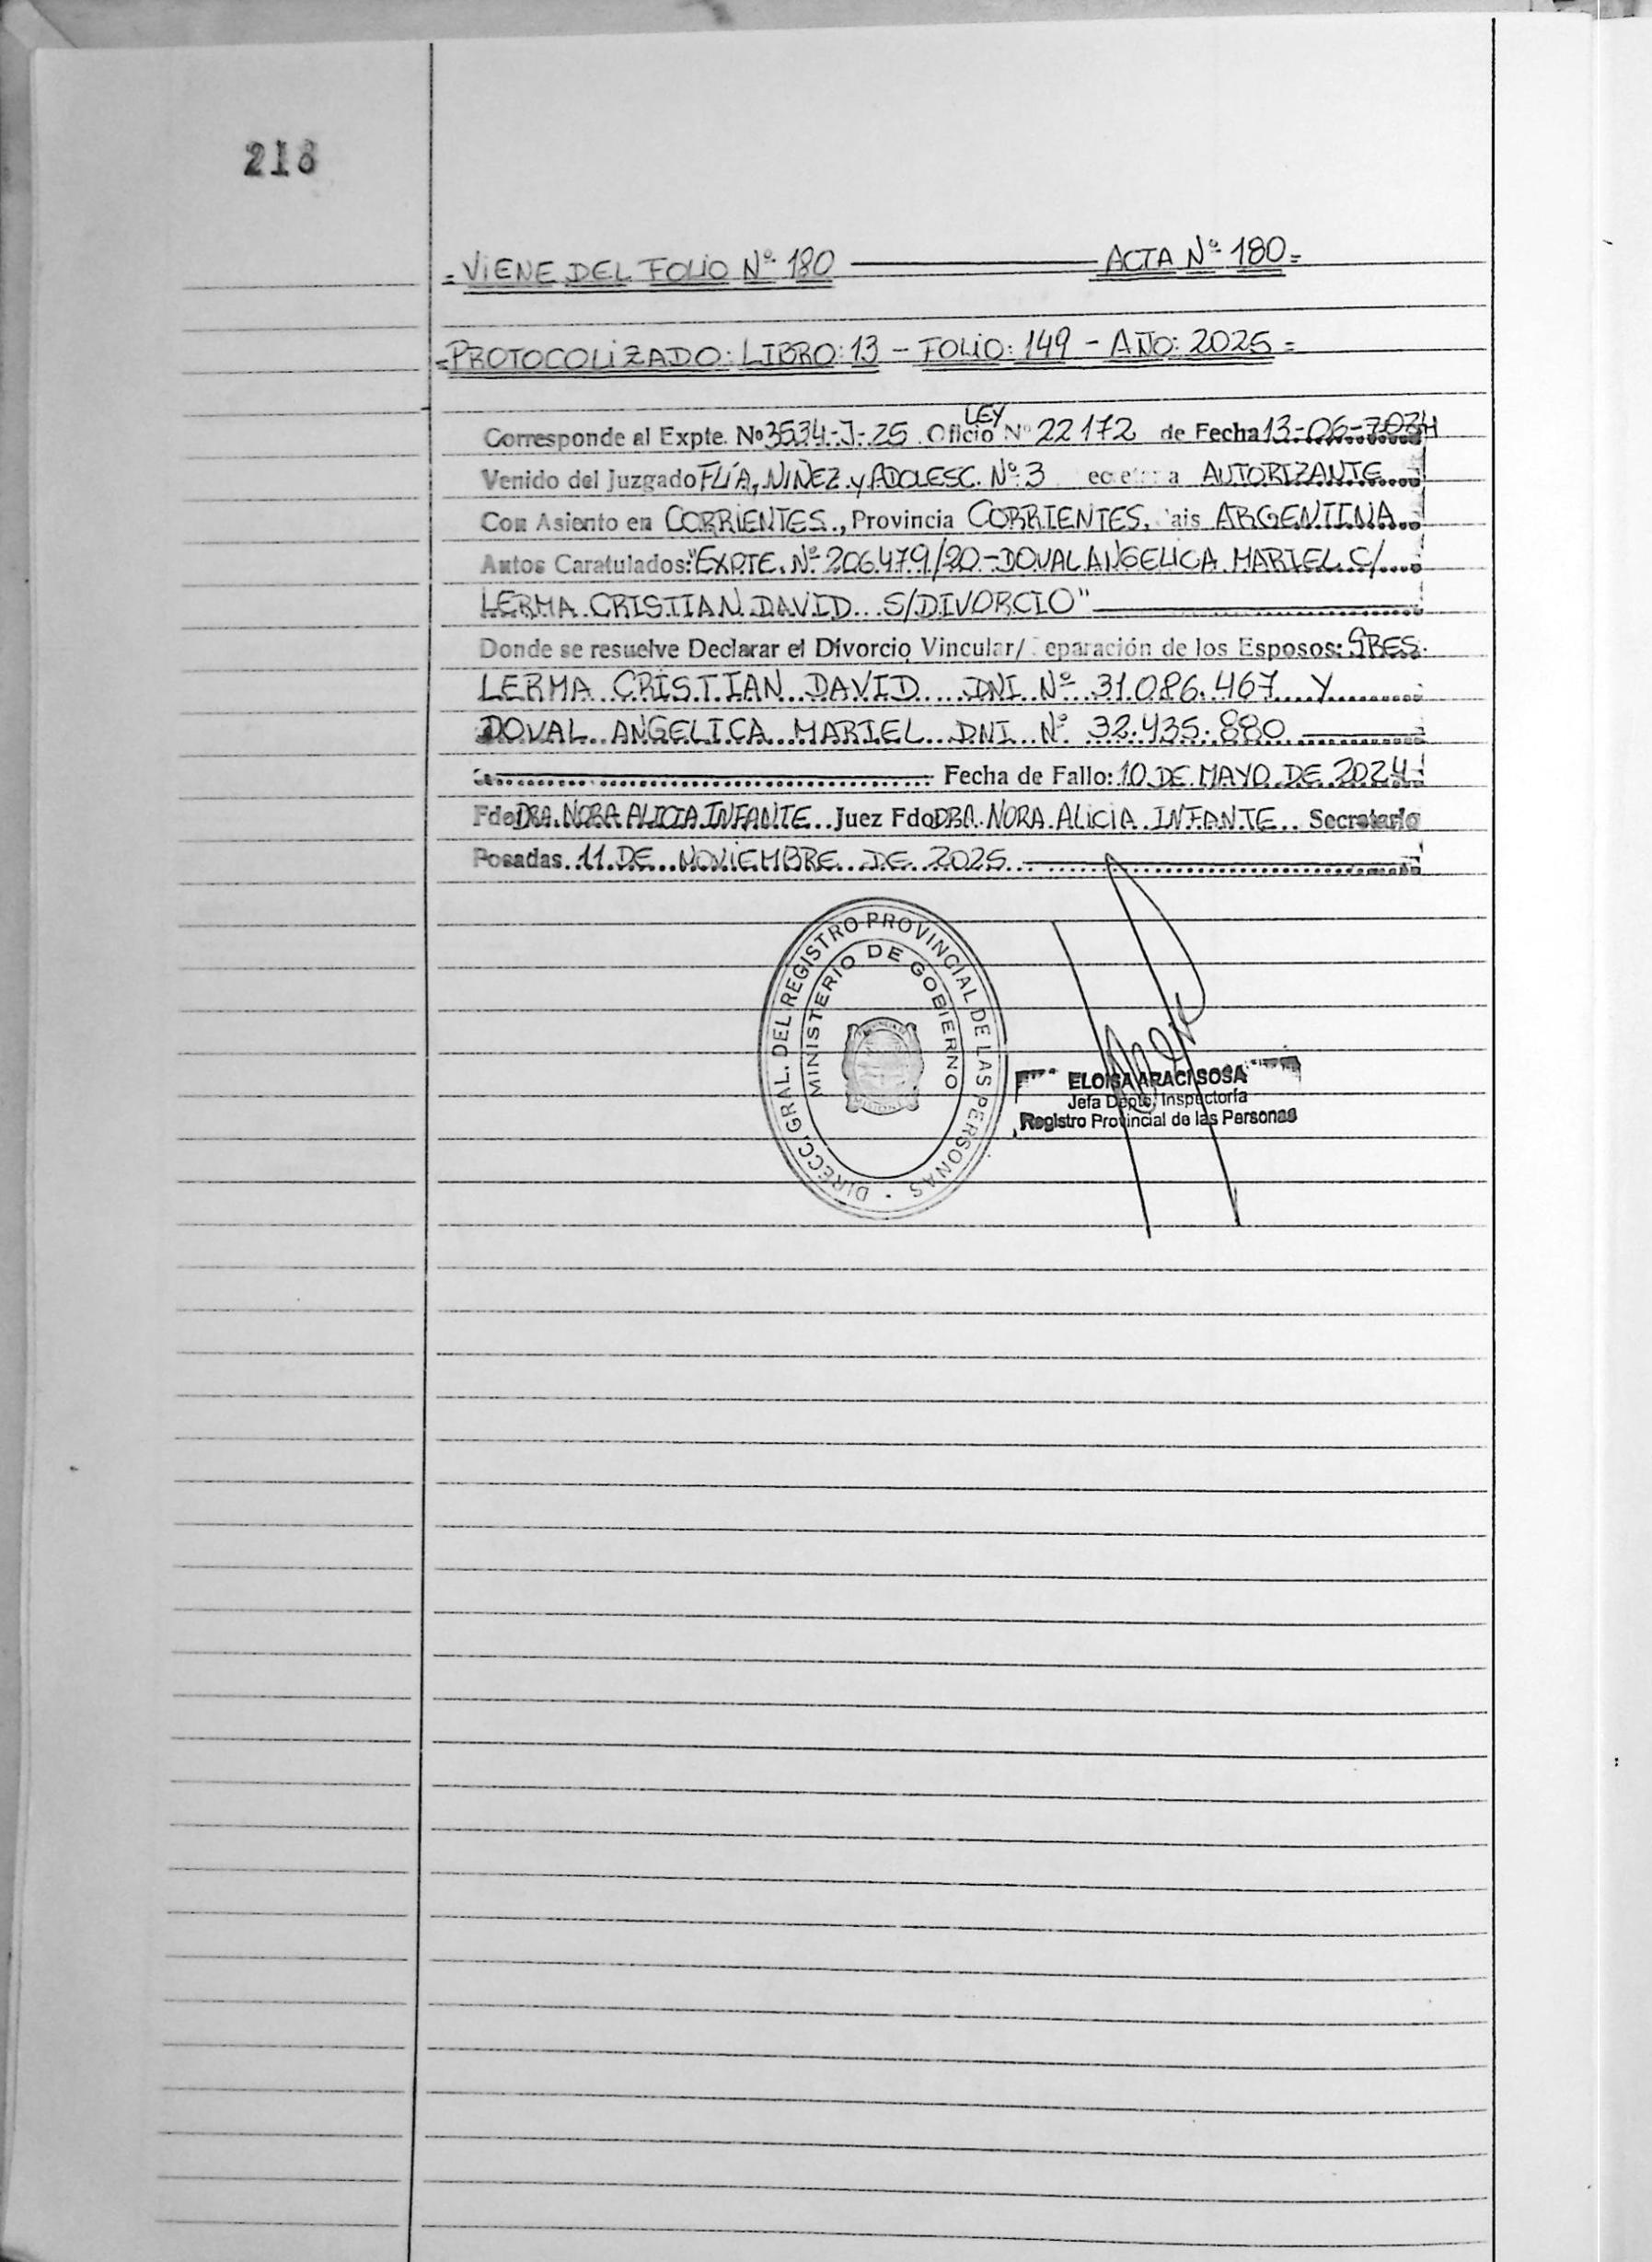 218
=VIENE DEL FOLIO Nº 180 ——— ACTA Nº 180=
=PROTOCOLIZADO: LIBRO: 13 - FOLIO: 149 - AÑO: 2025=
LEY
Corresponde al Expte. Nº 3534-J-25 Oficio Nº 22172 de Fecha 13-06-2024
Venido del Juzgado FLIA, NIÑEZ y ADOLESC. Nº 3 AUTORIZANTE
Con Asiento en CORRIENTES, Provincia CORRIENTES, ais ARGENTINA
Autos Caratulados: "EXPTE. Nº 206.479/20-DOVAL ANGELICA MARIEL C/
LERMA CRISTIAN DAVID S/DIVORCIO"
Donde se resuelve Declarar el Divorcio Vincular/ eparación de los Esposos: SRES.
LERMA CRISTIAN DAVID DNI Nº 31.086.467 Y
DOVAL ANGELICA MARIEL DNI Nº 32.435.880
Fecha de Fallo: 10 DE MAYO DE 2024
Fdo DRA. NORA ALICIA INFANTE Juez Fdo DRA. NORA ALICIA INFANTE Secretario
Posadas 11 DE NOVIEMBRE DE 2025
DIRECC. GRAL. DEL REGISTRO PROVINCIAL DE LAS PERSONAS
MINISTERIO DE GOBIERNO
ELOISA ARACI SOSA
Jefa Depto. Inspectoría
Registro Provincial de las Personas